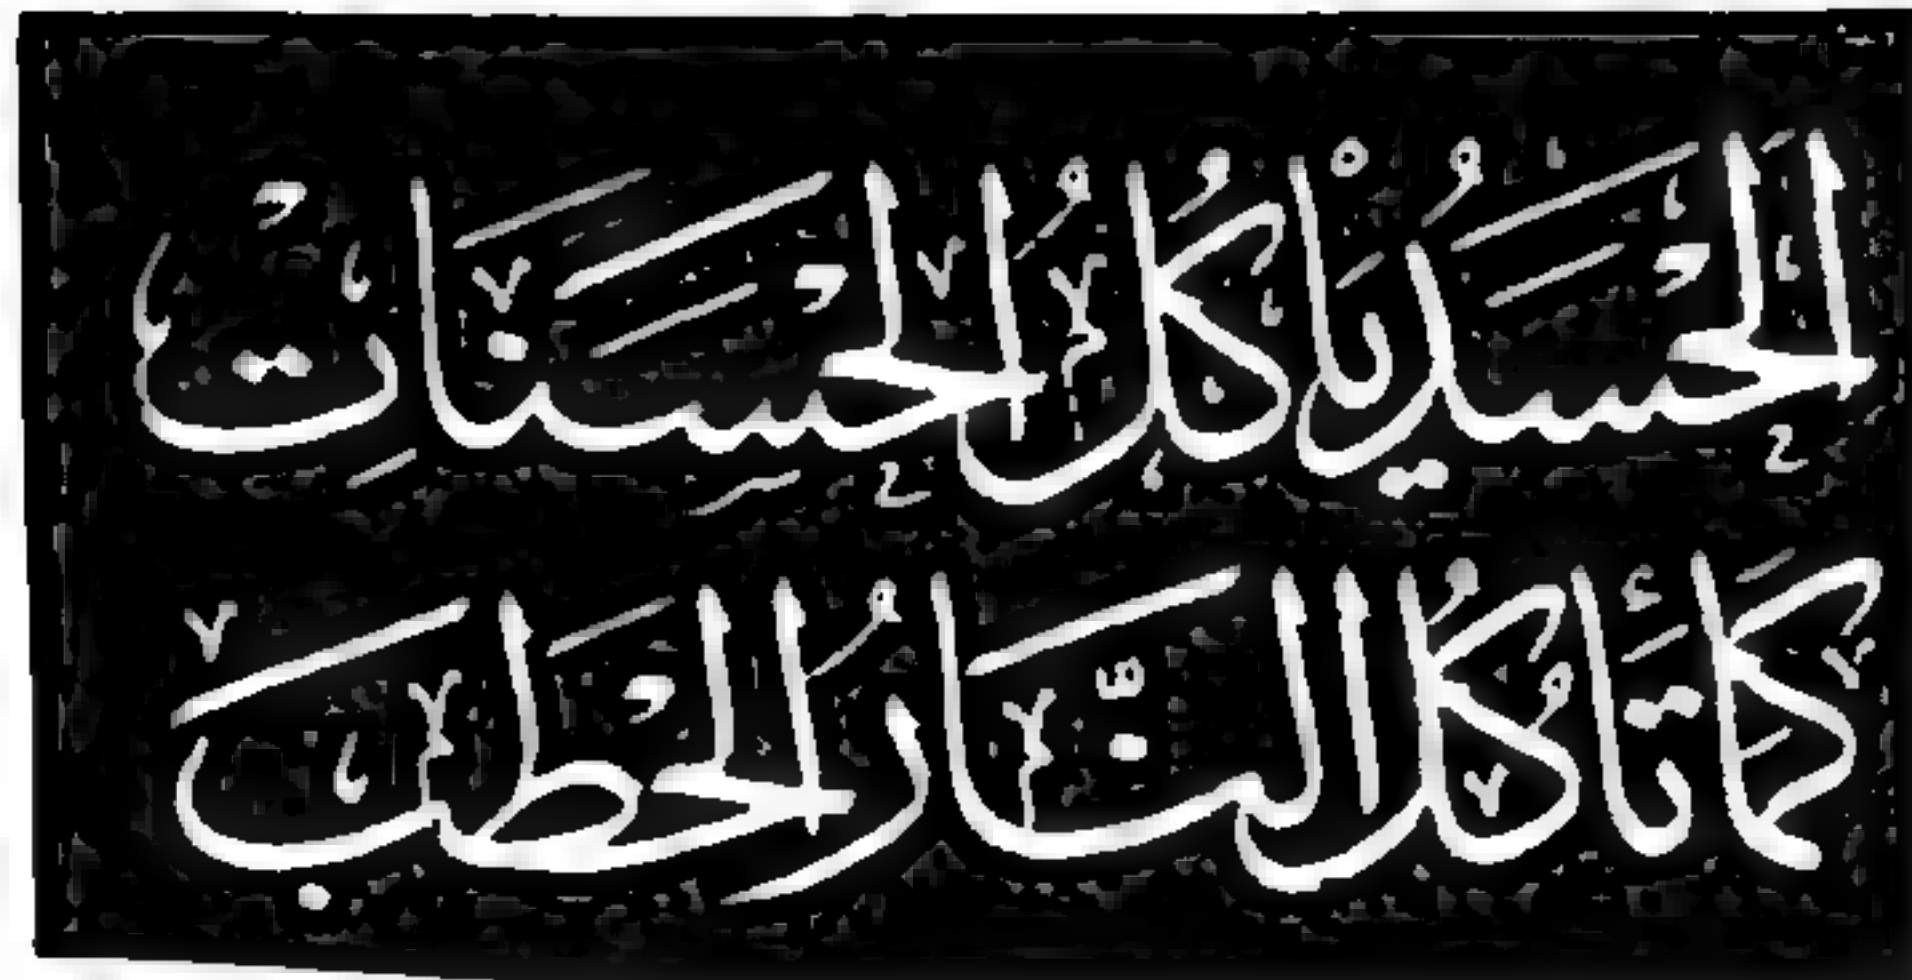 الْحَسَدُ يَأْكُلُ الْحَسَنَاتِ
كَمَا تَأْكُلُ النَّارُ الْحَطَبَ